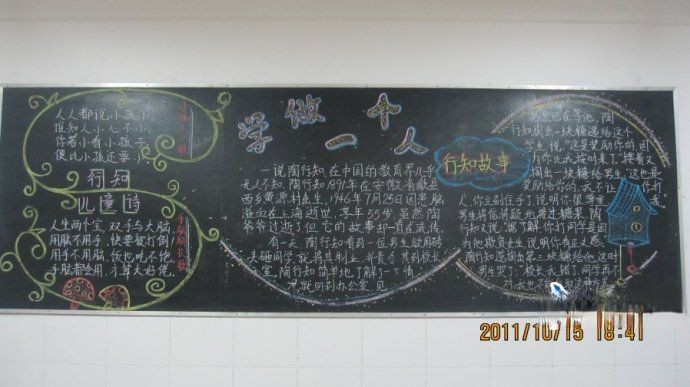 人人都说小孩小，
谁知人小心不小，
你若小看小孩子，
便比小孩还要小。
行知
儿童诗
人生两个宝，双手与大脑。
用脑不用手，快要被打倒。
用手不用脑，饭也吃不饱。
手脑都会用，才算大好佬。
学做一个人
一说陶行知，在中国的教育界几乎
无人不知，陶行知1891年在安徽省歙县
西乡黄源村出生，1946年7月25日因患脑
溢血在上海逝世，享年55岁。虽然陶
爷爷过逝了，但它的故事却一直流传。
有一天，陶行知看到一位男生欲用砖
头砸同学，就将其制止，并责令其到校长
室，陶行知简单地了解了一下情
况就回到办公室，见
行知故事
男生已在等他，陶
行知掏出一块糖递给这个
学生，说"这是奖励你的，因
为你比我按时来了。"接着又
掏出一块糖给男生"这也是
奖励给你的，我不让你打
人，你立刻住手了，说明你很尊重
男生将信将疑地接过糖果，陶
行知又说："据了解，你打同学是因
为他欺负女生，说明你有正义感。"
陶行知遂掏出第三块糖给他，这时
男生哭了："校长，我错了，同学再不
对，我也不
2011/10/15 18:41